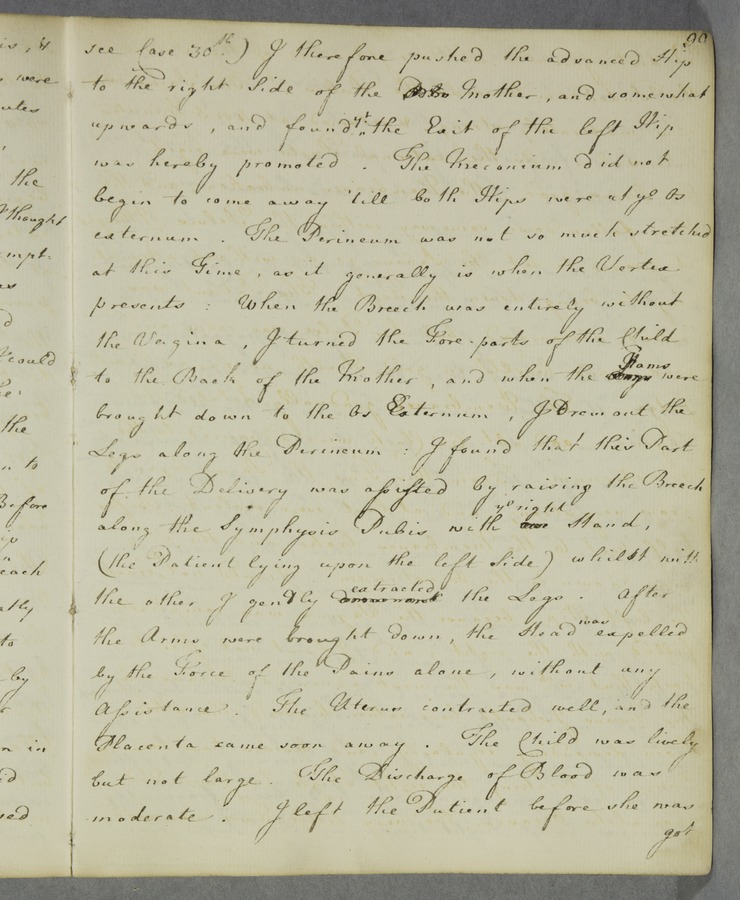 99
see Case 30th.) I therefore pushed the advanced Hip
to the right Side of the Mother, and somewhat
upwards, and found yt. the Exit of the left Hip
was hereby promoted. The Meconium did not
begin to come away 'till both Hips were at ye. Os
externum. The Perineum was not so much stretched
at this Time, as it generally is when the Vertex
presents: When the Breech was entirely without
the Vagina, I turned the Fore-parts of the Child
to the Back of the Mother, and when the Hams were
brought down to the Os Externum, I Drew out the
Legs along the Perineum: I found that this Part
of the Delivery was assisted by raising the Breech
along the Symphysis Pubis with ye right Hand,
(the Patient lying upon the left Side) whilst with
the other I gently extracted the Legs. After
the Arms were brought down, the Head was expelled
by the Force of the Pains alone, without any
Assistance. The Uterus contracted well, and the
Placenta came soon away. The Child was lively
but not large. The Discharge of Blood was
moderate. I left the Patient before she was
got
is, &
were
utes
the
thought
empt-
as
d
would
the
n to
Before
each
atly
to
by
r
n in
id
sed